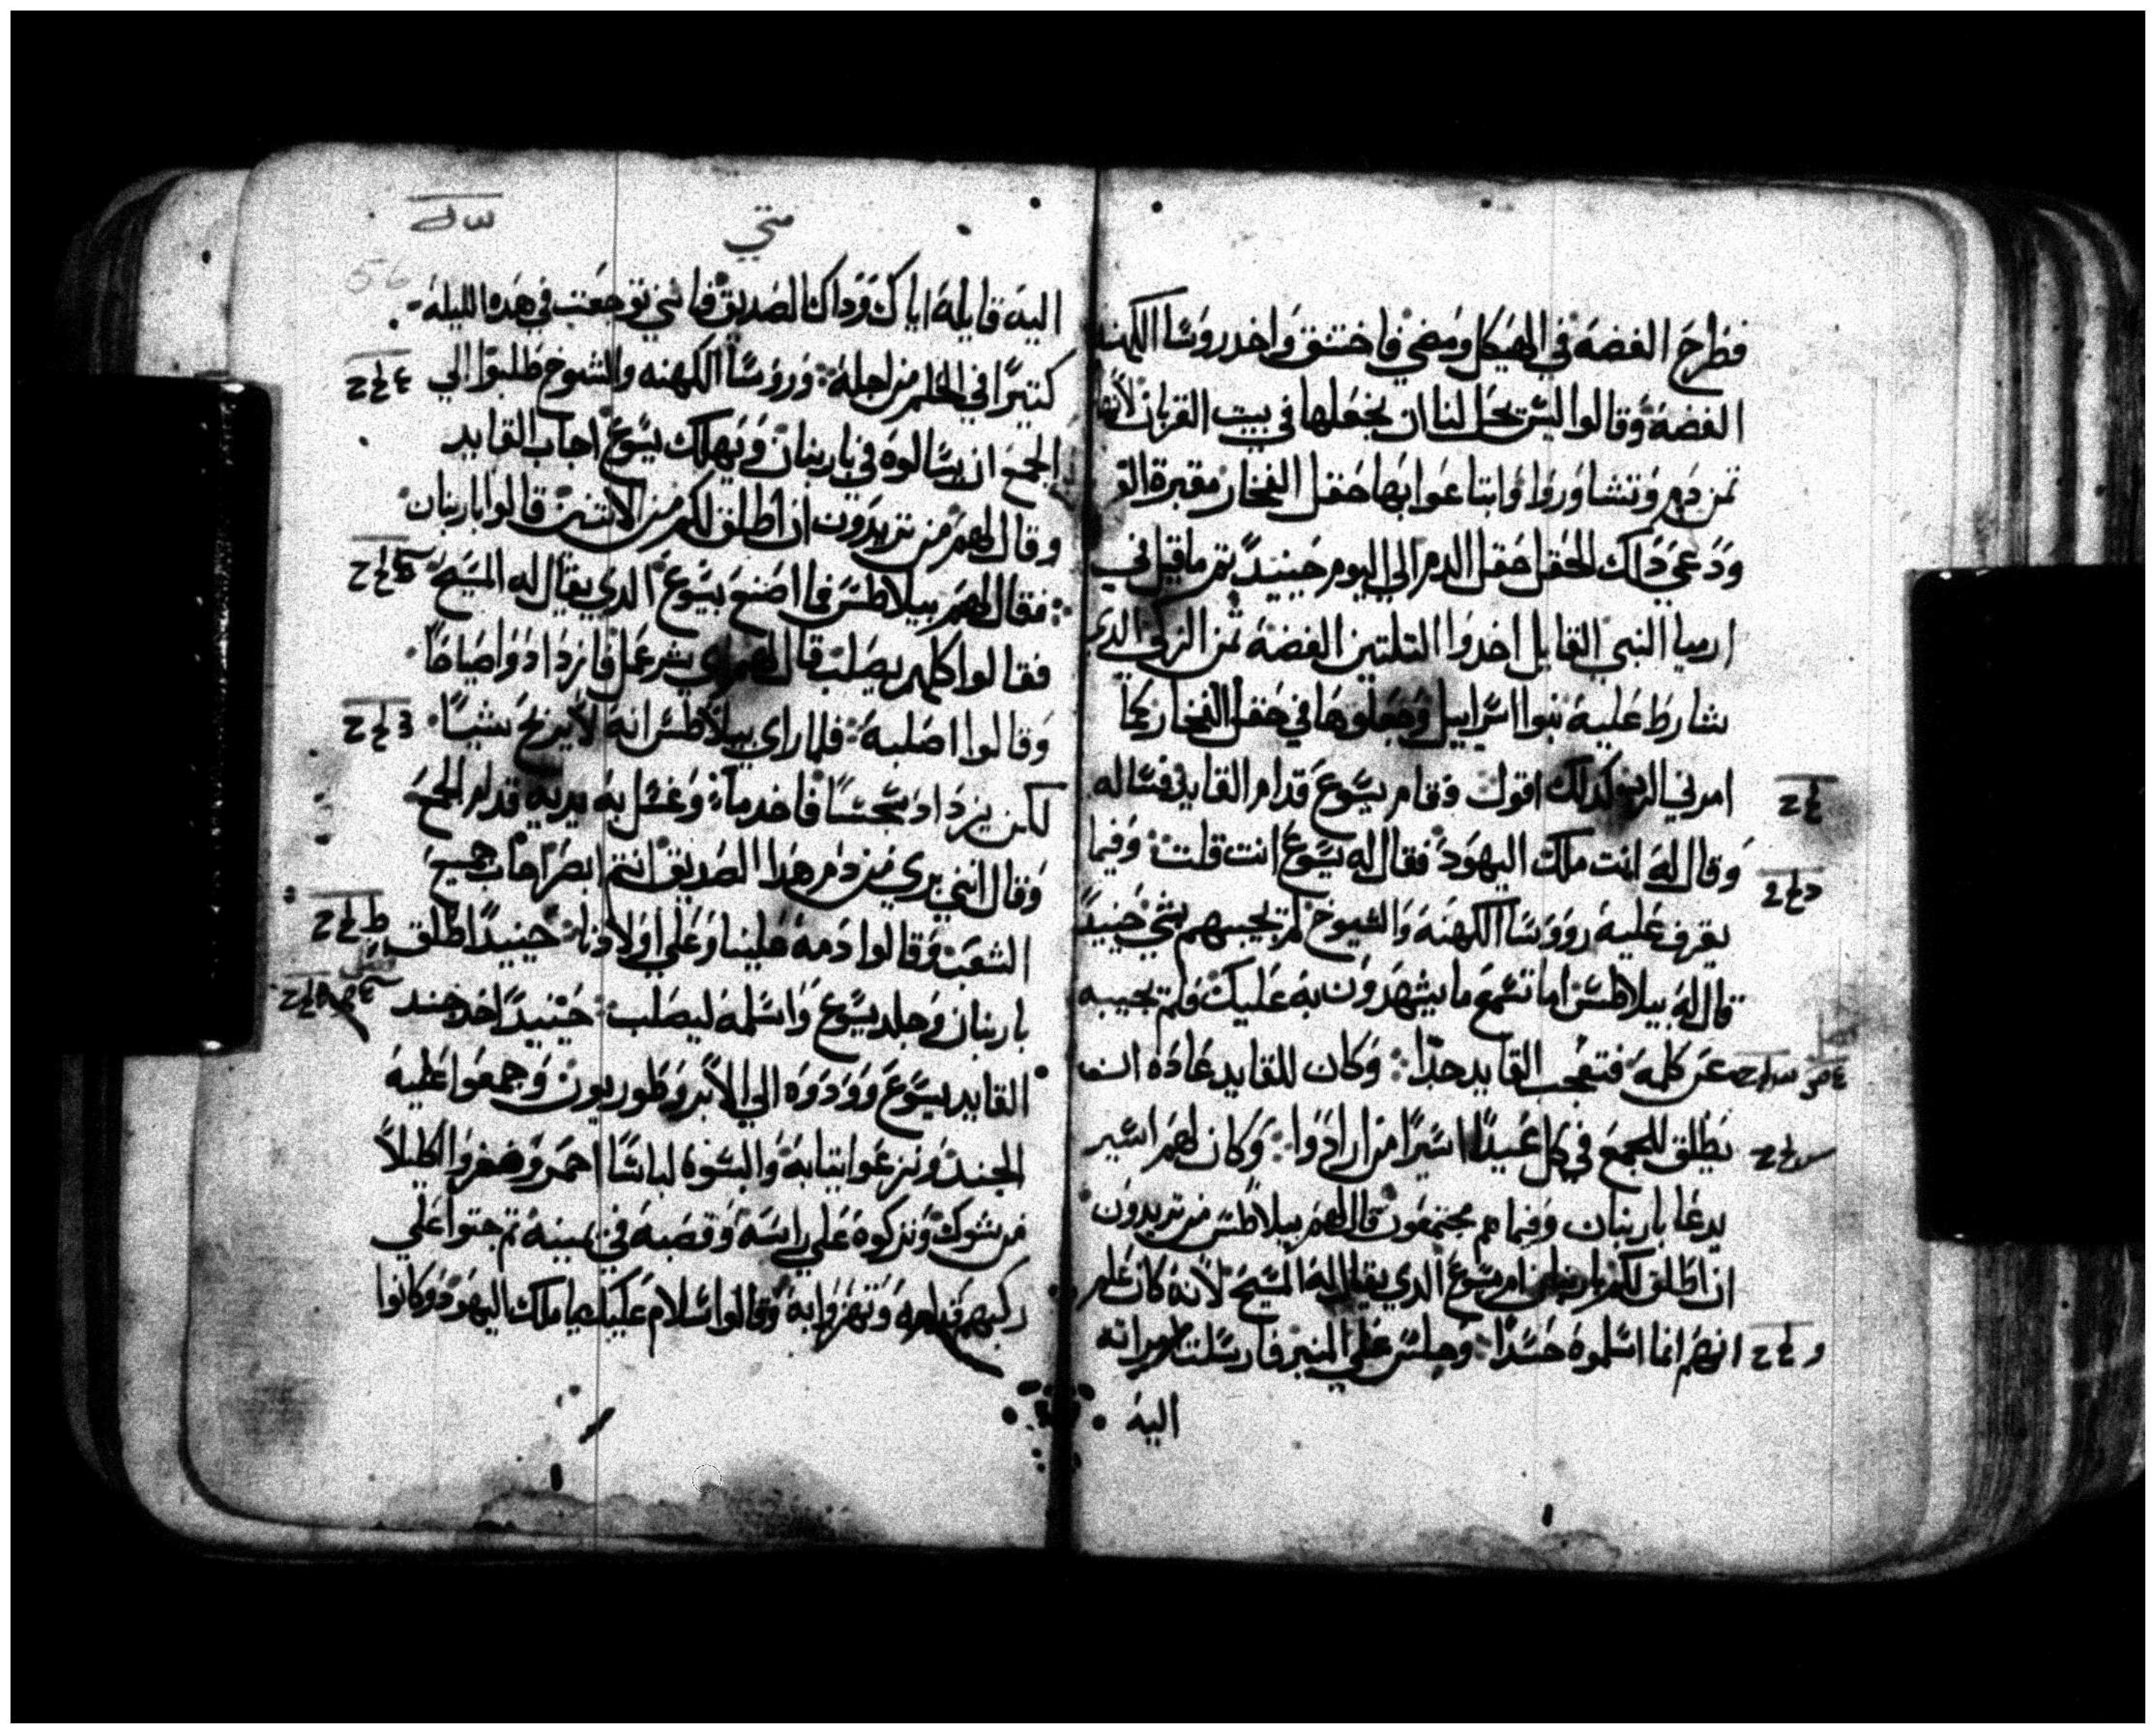 فطرح الفضة في الهيكل ومضي فاختنق واخد روسا الكهنة
الفضة وقالوا ليس يحل لنا ان نجعلها في بيت القربان لانها
تمن دم وتشاوروا وابتاعوا بها حقل الفخار مقبرة
ودعي دلك الحقل حقل الدم الي اليوم حينيدً تم ما قيل في
ارميا النبي القايل اخدوا التلتين الفضة تمن الزكي الدي
شارط عليه بنوا اسراييل وجعلوها في حقل الفخار كما
امرني الرب كدلك اقول وقام يسوع قدام القايد فساله
وقال له انت ملك اليهود فقال له يسوع انت قلت وفيما
يقرف عليه رووسا الكهنة والشيوخ لم يجيبهم بشي حينيدً
قال له بيلاطس اما تسمع ما يشهدون به عليك فلم يجيبه
عن كلمه فتعجب القايد جدًا وكان للقايد عادة ان
يطلق للجمع في كل عيدًا اسيرًا من ارادوا وكان لهم اسير
يدعا باربنان وفيما هم مجتمعون قال لهم بيلاطس من تريدون
ان اطلق لكم باربنان ام يسوع الدي يقال له المسيح لانه كان علم
انهم انما اسلموه حسدًا وجلس علي المنبر فارسلت امراته
اليه
متي
56
اليه قايلة اياك وداك الصديق فانني توجعت في هده الليلة
كتيرًا في الحلم من اجله وروسا الكهنه والشيوخ طلبوا الي
الجمع ان يسالوه في باربنان ويهلك يسوع اجاب القايد
وقال لهم من تريدون ان اطلق لكم من الاتنين قالوا باربنان
فقال لهم بيلاطس فما اصنع بيسوع الدي يقال له المسيح
فقالوا كلهم يصلب قال لهم اي شر عمل فازدادوا صياحًا
وقالوا اصلبه فلما راي بيلاطس انه لا يربح شيًا
لكن يزداد سجسًا فاخد ماءً وغسل به يديه قدام الجمع
وقال انني بري من دم هدا الصديق انتم ابصر اجاب جميع
الشعب وقالوا دمه علينا وعلي اولادنا حينيدًا اطلق
باربنان وجلد يسوع واسلمه ليصلب حينيدًا اخد جند
القايد يسوع وودوه الي الابروطوريون وجمعوا عليه
الجند ونزعوا تيابه والبسوه لباسًا احمر وضفروا اكليلاً
من شوك وتركوه علي راسه وقصبه في يمينه تم جتوا علي
ركبهم قدامه وتهزوا به وقالوا السلام عليك يا ملك اليهود وكانوا